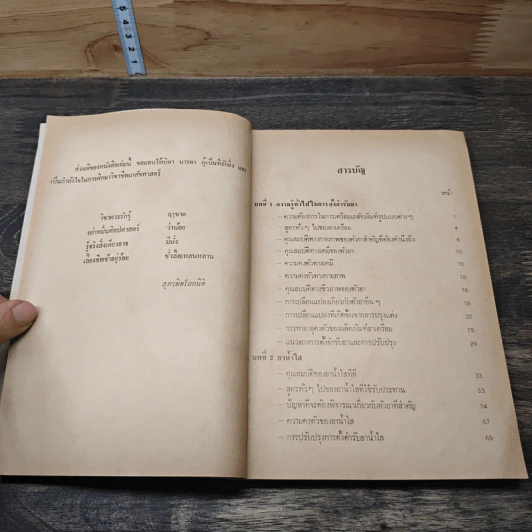 ส่วนดีของหนังสือเล่มนี้ ขอมอบให้บิดา มารดา ผู้เป็นที่รักยิ่ง และ
เป็นกำลังใจในการศึกษาวิชาชีพเภสัชศาสตร์
วิชาควรรักรู้ ฤๅขาด
อย่าหมิ่นศิลปศาสตร์ ว่าน้อย
รู้จริงสิ่งเดียวอาจ มีมั่ง
เลี้ยงชีพช้าอยู่ร้อย ชั่วลื้อเหลนหลาน
สุภาษิตโลกนิติ
สารบัญ
หน้า
บทที่ 1 ความรู้ทั่วไปในการตั้งตำรับยา
- ความต้องการในการเตรียมเภสัชภัณฑ์รูปแบบต่าง ๆ 1
- สูตรทั่วๆ ไปของยาเตรียม 4
- คุณสมบัติทางกายภาพของตัวยาสำคัญที่ต้องคำนึงถึง
- คุณสมบัติทางเคมีของตัวยา 10
- ความคงตัวทางเคมี
- ความคงตัวทางกายภาพ
- คุณสมบัติทางชีวภาพของตัวยา
- การเปลี่ยนแปลงเกี่ยวกับตัวยาอื่น ๆ
- การเปลี่ยนแปลงที่เกิดขึ้นจากสารปรุงแต่ง
- การหาอายุคงตัวของผลิตภัณฑ์ยาเตรียม
- แนวทางการตั้งตำรับยาและการปรับปรุง 29
บทที่ 2 ยาน้ำใส
- คุณสมบัติของยาน้ำใสที่ดี 33
- สูตรทั่วๆ ไปของยาน้ำใสที่ใช้รับประทาน 33
- ปัญหาที่จะต้องพิจารณาเกี่ยวกับตัวยาที่สำคัญ 34
- ความคงตัวของยาน้ำใส 57
- การปรับปรุงการตั้งตำรับยาน้ำใส 65